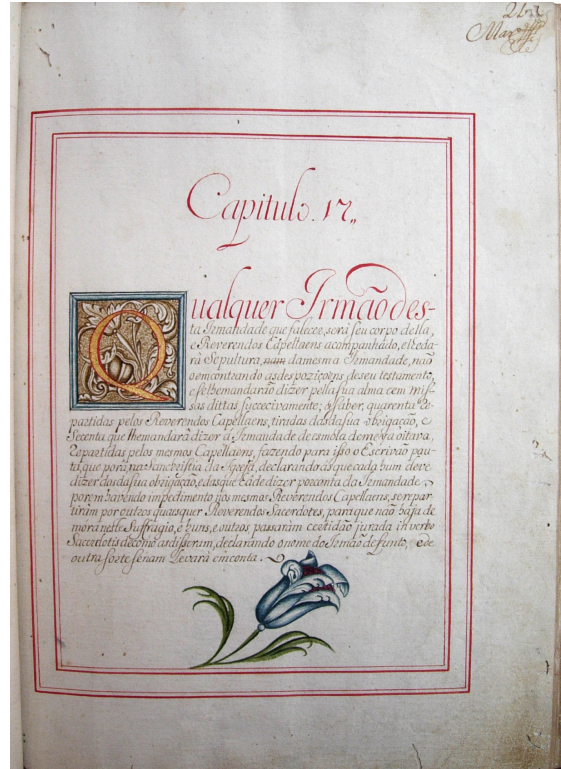 Capitulo. 17,,
Qualquer Irmão des-
ta Irmandade que falecer, será seu corpo della,
e Reverendos Capellaens acompanhado, e se da-
rá Sepultura, num da mesma Irmandade, não
e se lhe mandarão dizer pella sua alma cem mis-
sas dittas successivamente; a saber, quarenta re-
partidas pelos Reverendos Capellaens, tiradas das da sua obrigação, e
secenta que lhe mandará dizer a Irmandade de esmola de meya oitava,
repartidas pelos mesmos Capellaens, fazendo para isso o Escrivão pau-
ta, que porá na Sanchristia da Igreja, declarando as que cada hum deve
dizer das da sua obrigação, e das que há de dizer por conta da Irmandade
porem havendo impedimento nos mesmos Reverendos Capellaens, se repar-
tiram por outros quaesquer Reverendos Sacerdotes, para que não haja de
mora neste Suffragio, e huns, e outros passarám certidão jurada in verbo
Sacerdotis de como as disseram, declarando o nome do Irmão defunto, e de
outra sorte se nam levará em conta.